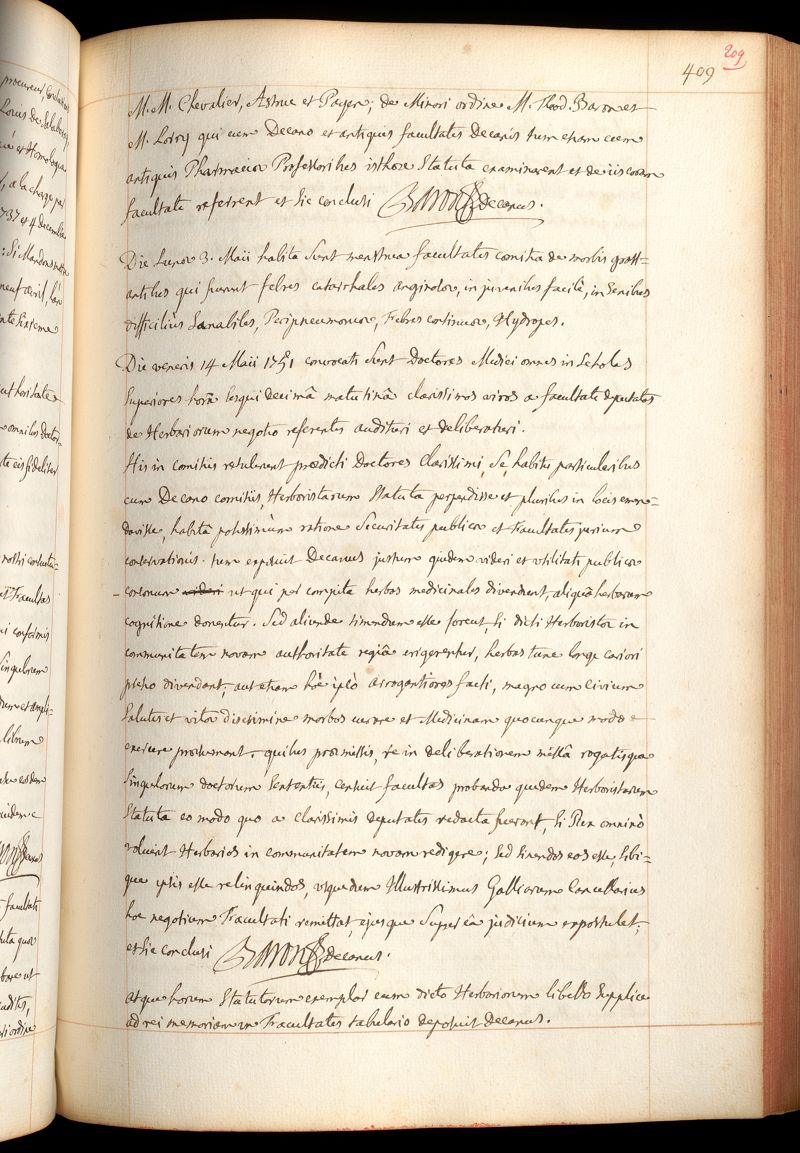 procureur,
Louis de
et Homologu
, a la charge par
1737 et 4 decembre
: Si Mandons
neuf avril, l'an
authoritate
omnibus Docto=
eis fideliter
nostri
et Facultas
conformis
Singulorum
dum et ampli=
librum
eosdem
quidem
decanus
facultati
quos
ut
auditis,
ordine
409
209
M. M. Chevalier, Astruc et Payen; de Minori ordine M. Theod. Baron et
M. Lorry qui cum Decano et antiquis facultatis Decanis tum etiam cum
antiquis Pharmaciæ Professoribus isthæc Statuta examinarent et de iis coram
facultate referrent et sic conclusi Baron decanus.
Die Lunæ 3. Maii habita sunt menstrua facultatis comitia de morbis grass=
antibus qui fuerunt febres catarrhales anginosæ, in juvenibus facilè, in senibus
difficilius Sanabiles, Peripneumoniæ, Febres continuæ, Hydropes.
Die veneris 14 Maii 1751 convocati sunt Doctores Medici omnes in Scholas
Superiores horâ sesqui decimâ matutinâ clarissimos viros a facultate deputatos
de Herbariorum negotio referentes audituri et deliberaturi.
His in comitiis retulerunt prædicti Doctores clarissimi, Se, habitis particularibus
cum Decano comitiis, Herboristarum Statuta perpendisse et pluribus in locis emen=
davisse, habitâ potissimùm ratione Securitatis publicæ et Facultatis jurium
conservationis. tum exposuit Decanus justum quidem videri et utilitati publicæ
- consonum videri ut qui per compita herbas medicinales divendunt, aliquâ herbarum
cognitione donentur. Sed aliunde timendum esse foret, si dicti Herboristæ in
communitatem novam authoritate regiâ erigerentur, herbas tunc longe cariori
pretio divendant, aut etiam hôc ipsò arrogantiores facti, magno cum civium
Salutis et vitæ discrimine morbos curare et Medicinam quocunque modo
exercere præsumant. quibus præmissis, re in deliberationem missâ rogatisque
Singulorum doctorum Sententiis, censuit facultas probanda quidem Herboristarum
Statuta eo modo quo a clarissimis deputatis redacta fuerant, si Rex omninò
voluerit Herbarios in communitatem novam redigere; Sed sinendos eos esse, sibi=
que ipsis esse relinquendos, usquedum Illustrissimus Galliarum Cancellarius
hoc negotium Facultati remittat, ejusque Super eâ judicium expostulet;
et sic conclusi Baron decanus.
atque horum Statutorum exemplar cum dicto Herbariorum libello Supplice
ad rei memoriam in Facultatis tabulario deposuit Decanus.